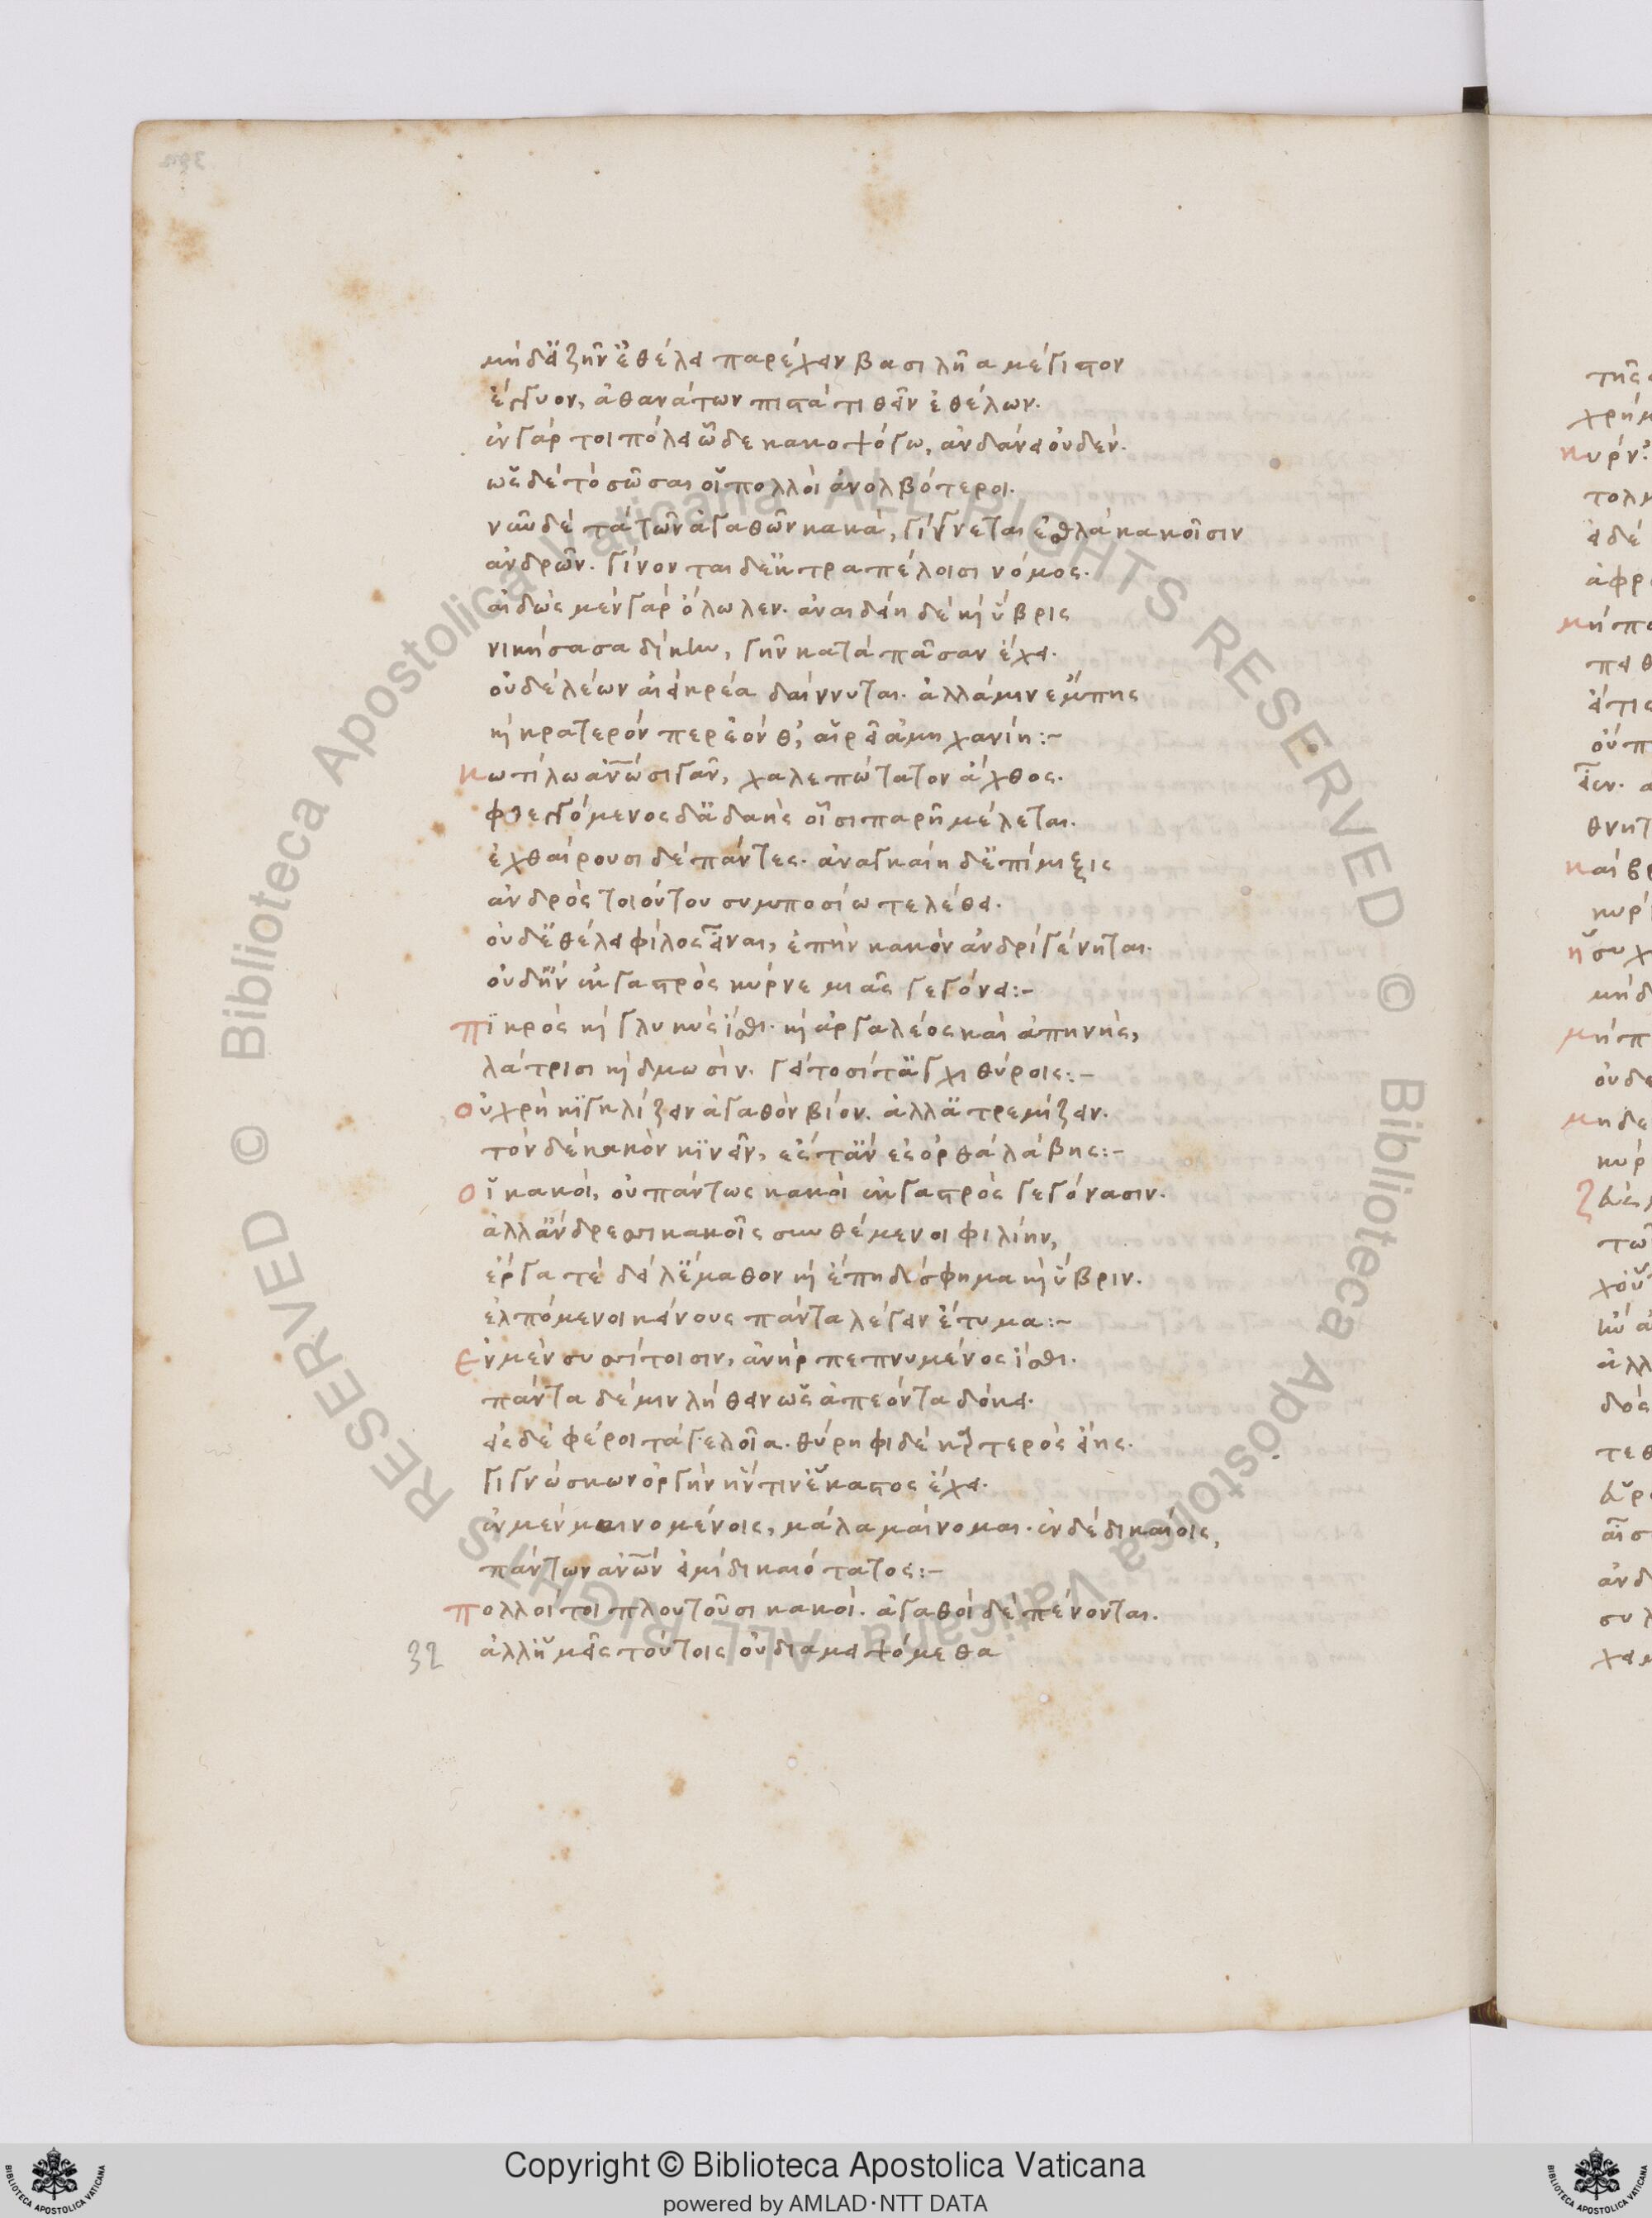 μὴ δἄζην ἐθέλει παρέχειν βασιλῆα μέγιστον
ἔγγυον, ἀθανάτων πιστὰ τιθεῖν ἐθέλων.
ἐν γάρ τοι πόλει ὧδε κακοψόγω, ἁνδάνει οὐδέν.
ὡς δὲ τὸ σῶσαι οἵ πολλοὶ ἀνολβότεροι.
νῦν δὲ τὰ τῶν ἀγαθῶν κακὰ, γίγνεται ἐσθλὰ κακοῖσιν
ἀνδρῶν. γίνονται δἐκτραπέλοισι νόμος.
αἰδὼς μὲν γὰρ ὄλωλεν. ἀναιδείη δὲ κὴ ὕβρις
νικήσασα δίκην, γῆν κατὰ πᾶσαν ἔχει.
οὐδὲ λέων αἰεὶ κρέα δαίννυται. ἀλλά μιν ἔμπης
κὴ κρατερόν περ ἐόνθ', αἱρεῖ ἀμηχανίη:~
κωτίλω ἀνω σιγᾶν, χαλεπώτατον ἄχθος.
φθεγγόμενος δἀδαὴς οἷσι παρῆ μέλεται.
ἐχθαίρουσι δὲ πάντες. ἀναγκαίη δἐπίμιξις
ἀνδρὸς τοιούτου συμποσίω τελέθει.
οὐδἐθέλει φίλος εἶναι, ἐπὴν κακὸν ἀνδρὶ γένηται.
οὐδἢν ἐκ γαστρὸς κύρνε μιᾶς γεγόνει:~
πϊκρὸς κὴ γλυκὺς ἴσθι. κὴ ἀργαλέος καὶ ἀπηνής,
λάτρισι κὴ δμωσίν. γείτοσί τἀγχιθύροις:~
οὐ χρὴ κϊγκλίζειν ἀγαθὸν βίον. ἀλλἀτρεμίζειν.
τὸν δὲ κακὸν κϊνεῖν, ἔς τἂν ἐς ὀρθὰ λάβης:~
οἵ κακοὶ, οὐ πάντως κακοὶ ἐκ γαστρὸς γεγόνασιν.
ἀλλἄνδρεσσι κακοῖς συνθέμενοι φιλίην,
ἔργα τὲ δείλἔμαθον κὴ ἔπη δύσφημα κὴ ὕβριν.
ἐλπόμενοι κείνους πάντα λέγειν ἔτυμα:~
ἐν μὲν συσσίτοισιν, ἀνὴρ πεπνυμένος ἴσθι.
πάντα δέ μιν λήθειν ὡς ἀπεόντα δόκει.
εἰς δὲ φέροι τὰ γελοῖα. θύρηφι δὲ κρτερὸς εἴης.
γιγνώσκων ὀργὴν ἥντιν' ἕκαστος ἔχει.
ἐν μὲν μαινομένοις, μάλα μαίνομαι. ἐν δὲ δικαίοις,
πάντων ἀνων εἰμὶ δικαιότατος:~
πολλοί τοι πλουτοῦσι κακοὶ. ἀγαθοὶ δὲ πένονται.
ἀλλ' ἡμεῖς τούτοις οὐ διαμειψόμεθα
32
Copyright © Biblioteca Apostolica Vaticana
powered by AMLAD·NTT DATA